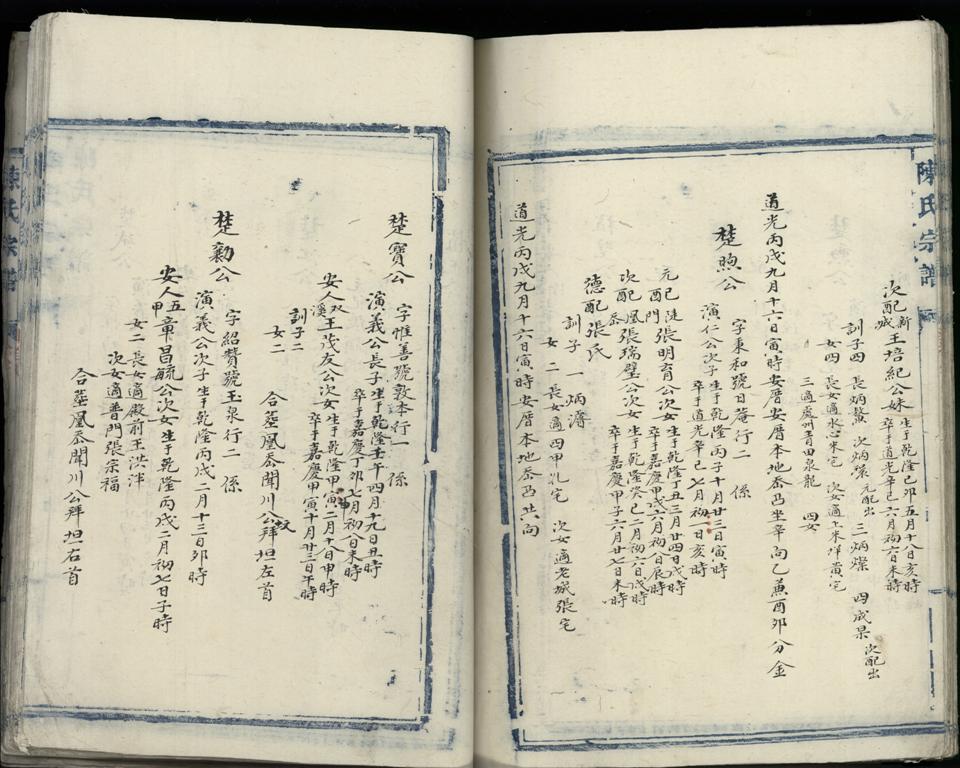 陳氏宗譜
次配新城王培紀公妹生于乾隆己卯五月十八日亥時
卒于道光辛巳六月初六日未時
訓子四 長炳鰲 次炳榮元配出 三炳燦 四成杲次配出
女四 長女適水心朱宅 次女適上米垟黃宅
三適處州青田泉龍 四女
道光丙戌九月十六日寅時安厝安厝本地岙凸坐辛向乙兼酉卯分金
楚煦公 字秉和號日菴行二 係
演仁公次子生于乾隆丙子十月廿三日寅時
卒于道光辛巳七月初一日亥時
元配陡門張明育公次女生于乾隆丁丑三月廿四日戌時
卒于嘉慶甲戌六月初八日辰時
次配鳳岙張瑞璧公次女生于乾隆癸巳二月初六日戌時
卒于嘉慶甲子六月廿七日未時
德配張氏
訓子一 炳濤
女二 長女適四甲孔宅 次女適老城張宅
道光丙戌九月十六日寅時安厝本地岙凸共向
楚寶公 字惟善號敦本行一 係
演義公長子生于乾隆壬午四月十九日丑時
卒于嘉慶丁卯七月初八日未時
安人双溪王茂友公次女生于乾隆甲寅二月十八日申時
卒于嘉慶甲寅十月廿三日午時
訓子二
女二
合塟鳳岙聞川公坟拜坦左首
楚勷公 字紹贊號玉泉行二 係
演義公次子生于乾隆丙戌二月十三日卯時
安人五甲章昌毓公次女生于乾隆丙戌二月初七日子時
女二 長女適殿前王洪泮
次女適普門張宗福
合塟鳳岙聞川公拜坦右首
陳氏宗譜